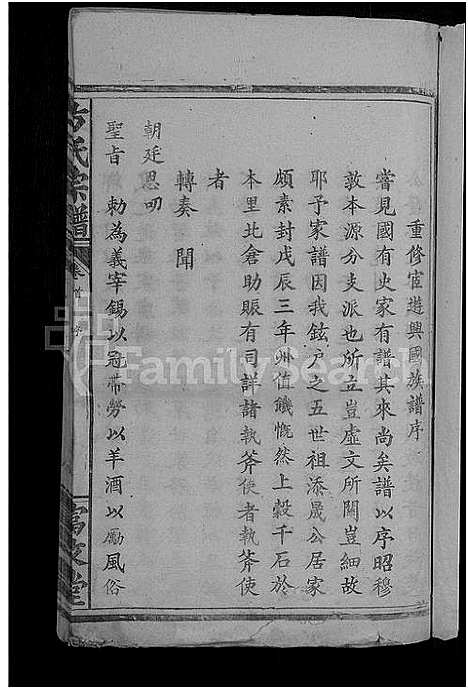 重修宦遊興國族譜序
甞見國有史家有譜其來尚矣譜以序昭穆
敦本源分支派也所立豈虛文所關豈細故
耶予家譜因我鉉户之五世祖添晟公居家
頗素封戊辰三年州值饑慨然上穀千石於
本里北倉助賑有司詳諸執斧使者執斧使
者
轉奏 聞
朝廷恩叨
聖旨 勅為義宰錫以冠帶勞以羊酒以勵風俗
氏宗譜
卷首
堂
FamilySearch